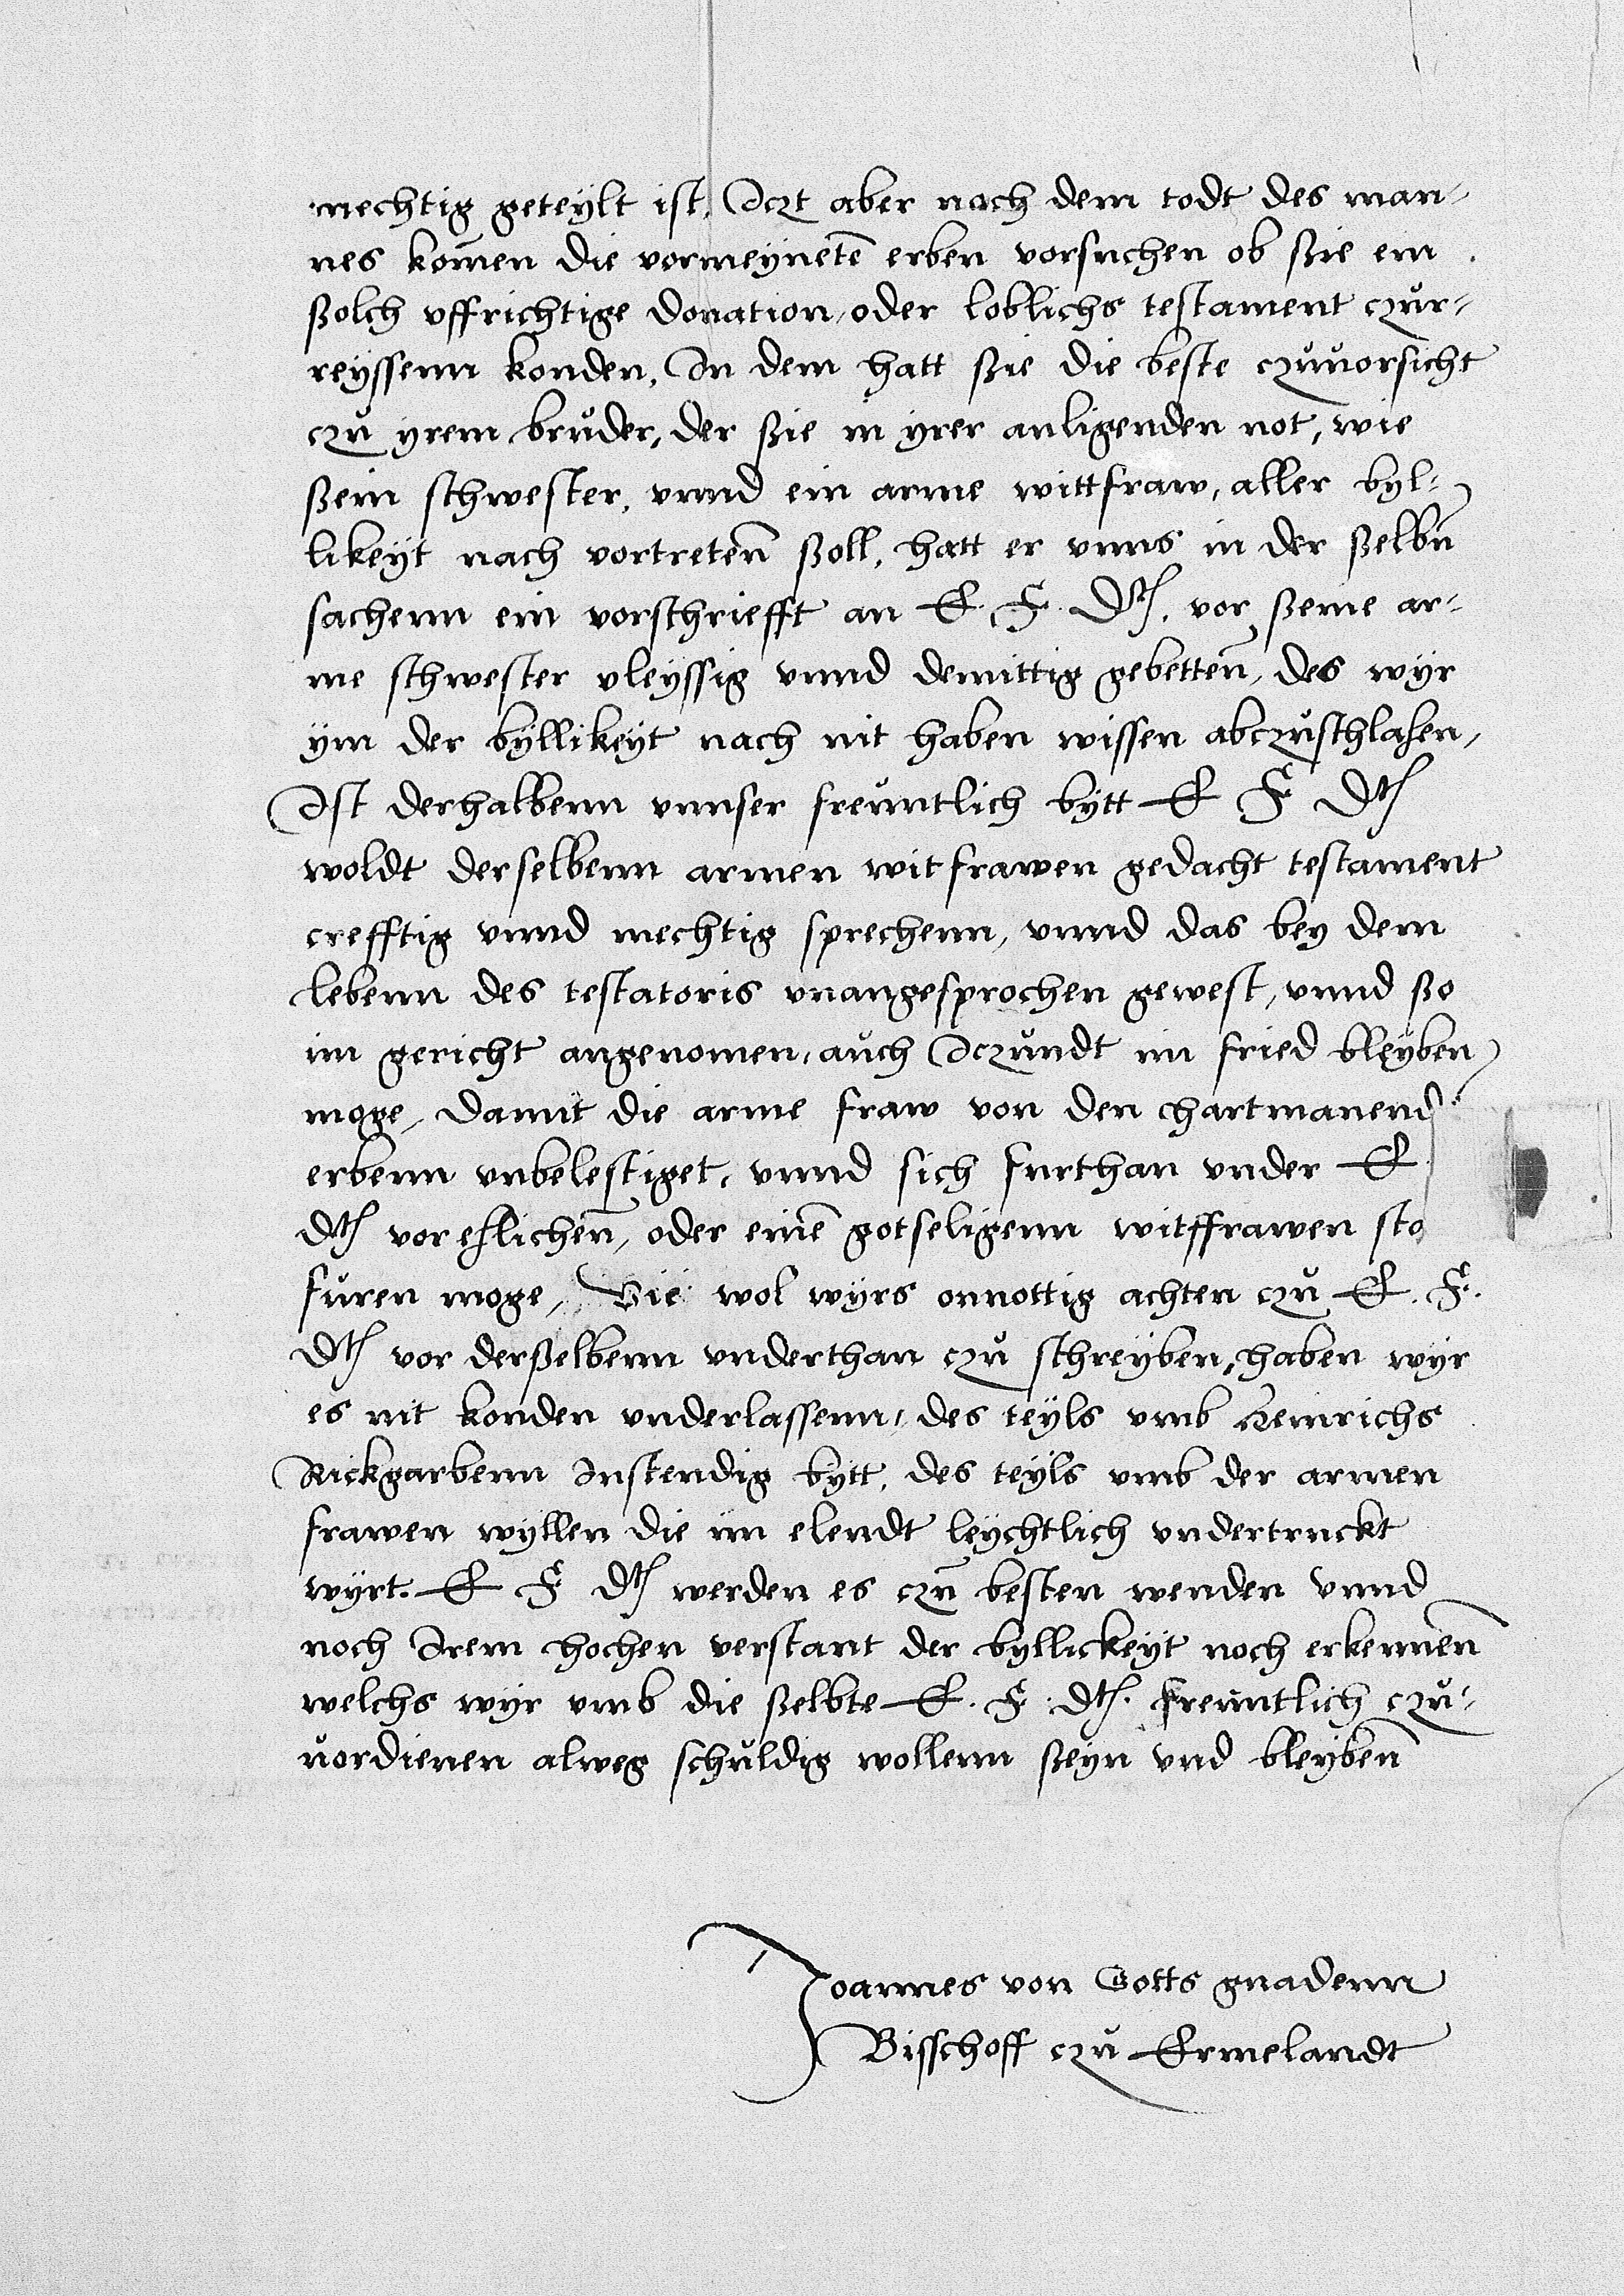 mechtig geteÿlt ist, Iczt aber nach dem todt des man-
nes kom̅en die vormeÿnete̅ erben vorsuchen ob ßie ein
ßolch vffrichtige donation, oder loblichs testament czur-
reÿssenn konden, In dem hatt ßie die beste czuuorsicht
czu ÿrem bruder, der ßie in ÿrer anligenden not, wie
ßein schwester, vnnd ein arme wittfraw, aller byl-
likeÿt nach vortreten̅ ßoll, hatt er vnns in der ßelbn̅
sachenn ein vorschriefft an E. F. Dth. vor ßeine ar-
me schwester vleÿssig vnnd demittig gebetten̅, des wÿr
ÿm der bÿllikeÿt nach nit haben wissen abczuschlahen,
Ist derhalbenn vnnser freuntlich bÿtt E F Dth
woldt derselbenn armen witfrawen gedacht testament
crefftig vnnd mechtig sprechenn, vnnd das bey dem
lebenn des testatoris vnangesprochen gewest, vnnd ßo
im gericht angenomen, auch Iczundt im fried bleÿben
moge, damit die arme fraw von den chartmanend
erbenn vnbelestiget, vnnd sich furthan vnder E
Dth vor ehlichen̅, oder eine̅ gotseligenn witffrawen sto
furen moge, Wie wol wÿrs onnottig achten czu E. F.
Dth vor derßelbenn vnderthan czu schreÿben, haben wÿr
es nit konden vnderlassenn, des teÿls vmb Heinrichs
Rickgarbenn Instendig bÿtt, des teÿls vmb der armen
frawen wÿllen die im elendt leÿchtlich vndertruckt
wÿrt. E F Dth werden es czu̅ besten wenden vnnd
noch Irem hochen verstant der byllickeÿt noch erkennen̅
welchs wÿr vmb die ßelbte E. F. Dth. freuntlich czu-
uordienen alweg schuldig wollenn ßeÿn vnd bleÿben̅
Joannes von Gotts gnadenn
Bisschoff czu Ermelandt